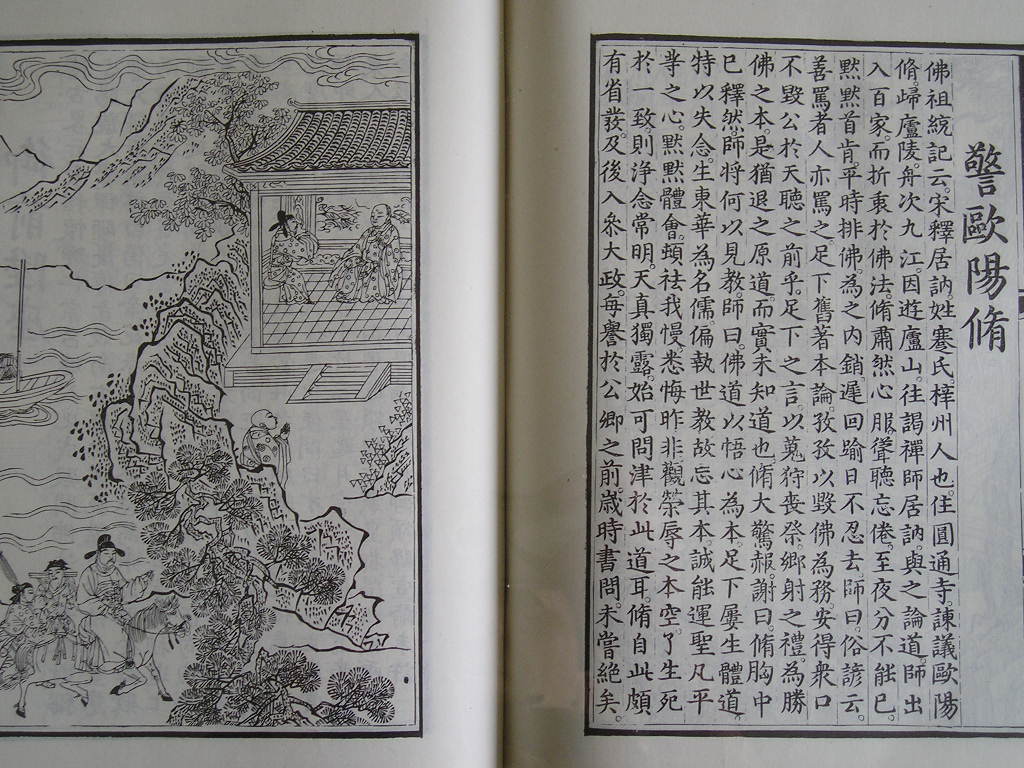 警歐陽脩
佛祖統記云。宋釋居訥。姓蹇氏。梓州人也。住圓通寺。諫議歐陽
脩歸廬陵。舟次九江。因遊廬山。往謁禪師居訥。與之論道。師出
入百家。而折衷於佛法。脩肅然心服。聳聽忘倦。至夜分不能已。
默默首肯。平時排佛。為之內銷。遲回踰日不忍去。師曰。俗諺云。
善罵者人亦罵之。足下舊著本論。孜孜以毀佛為務。安得眾口
不毀公於天聽之前乎。足下之言。以蒐狩喪祭。鄉射之禮。為勝
佛之本。是猶退之原道。而實未知道也。脩大驚赧。謝曰。脩胸中
已釋然。師將何以見教。師曰。佛道以悟心為本。足下屢生體道。
特以失念。生東華為名儒。偏執世教。故忘其本。誠能運聖凡平
等之心。默默體會。頓祛我慢。悉悔昨非。觀榮辱之本空。了生死
於一致。則淨念常明。天真獨露。始可問津於此道耳。脩自此頗
有省發。及後入參大政。每譽於公卿之前。歲時書問。未嘗絕矣。